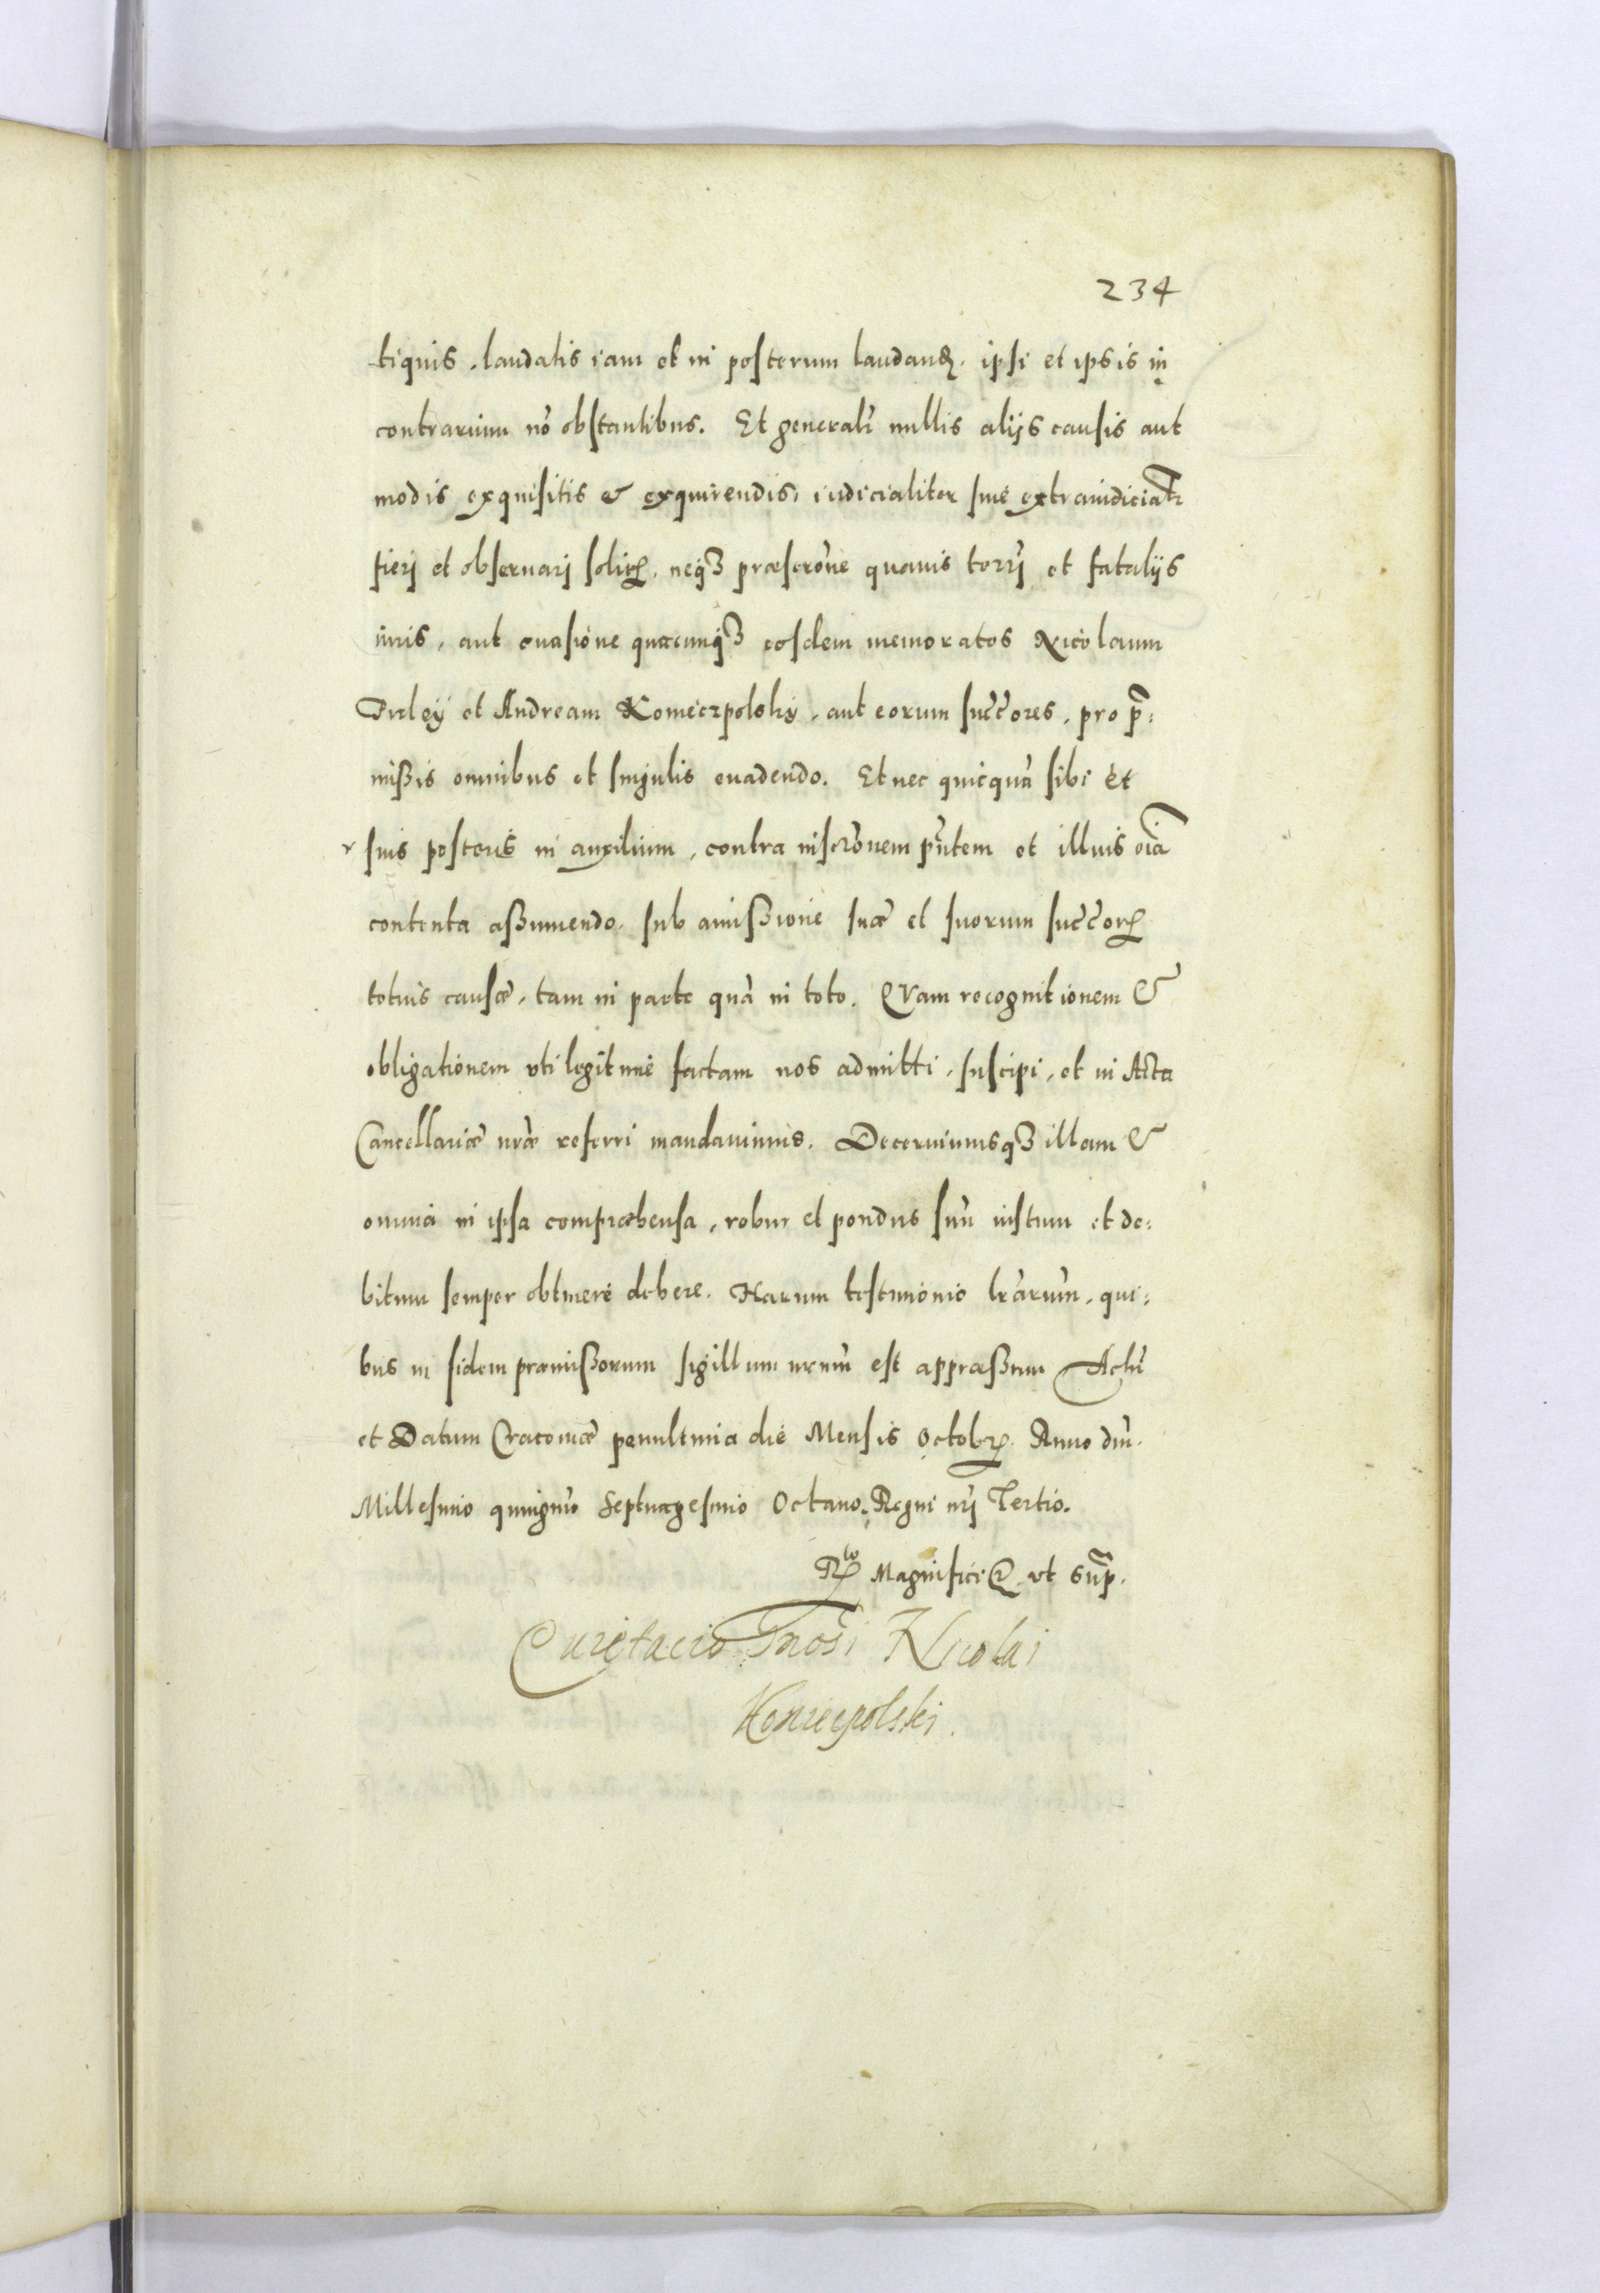 234
tiquis, laudatis iam et in posterum laudand. ipsi et ipsis in
contrarium nō obstantibus. Et generalr̃ nullis alijs causis aut
modis exquisitis & exquirendis, iudicialiter siue extraiudicialr̃
fierj et obseruarj solit., neqȝ præscrõne quauis terrj̃ et fatalijs
iuris, aut euasione quacunqȝ eosdem memoratos Nicolaum
Firleÿ et Andream Konieczpolskÿ, aut eorum succores, pro p̄:
mißis omnibus et singulis euadendo. Et nec quicquā sibi et
suis posteris in auxilium, contra inscrõnem pñtem et illius oĩa
contenta aßumendo, sub amißione suæ et suorum succor.
totius causæ, tam in parte quā in toto. QVam recognitionem &
obligationem vti legitime factam nos admitti, suscipi, et in Acta
Cancellariæ nr̃æ referri mandauimus. Decernimusqȝ illam &
omnia in ipsa compræhensa, robur et pondus suū iustum et de:
bitum semper obtinere debere. Harum testimonio lr̃arum, qui:
bus in fidem præmißorum sigillum nr̃um est appræßum Actū
et Datum Cracouiæ penultima die Mensis Octobr. Anno dnĩ.
Millesimo quingmo Septuagesimo Octauo. Regni nrĩ Tertio.
Rlo Magnifici & vt sup̄.
Nicolai
Koniecpolski.